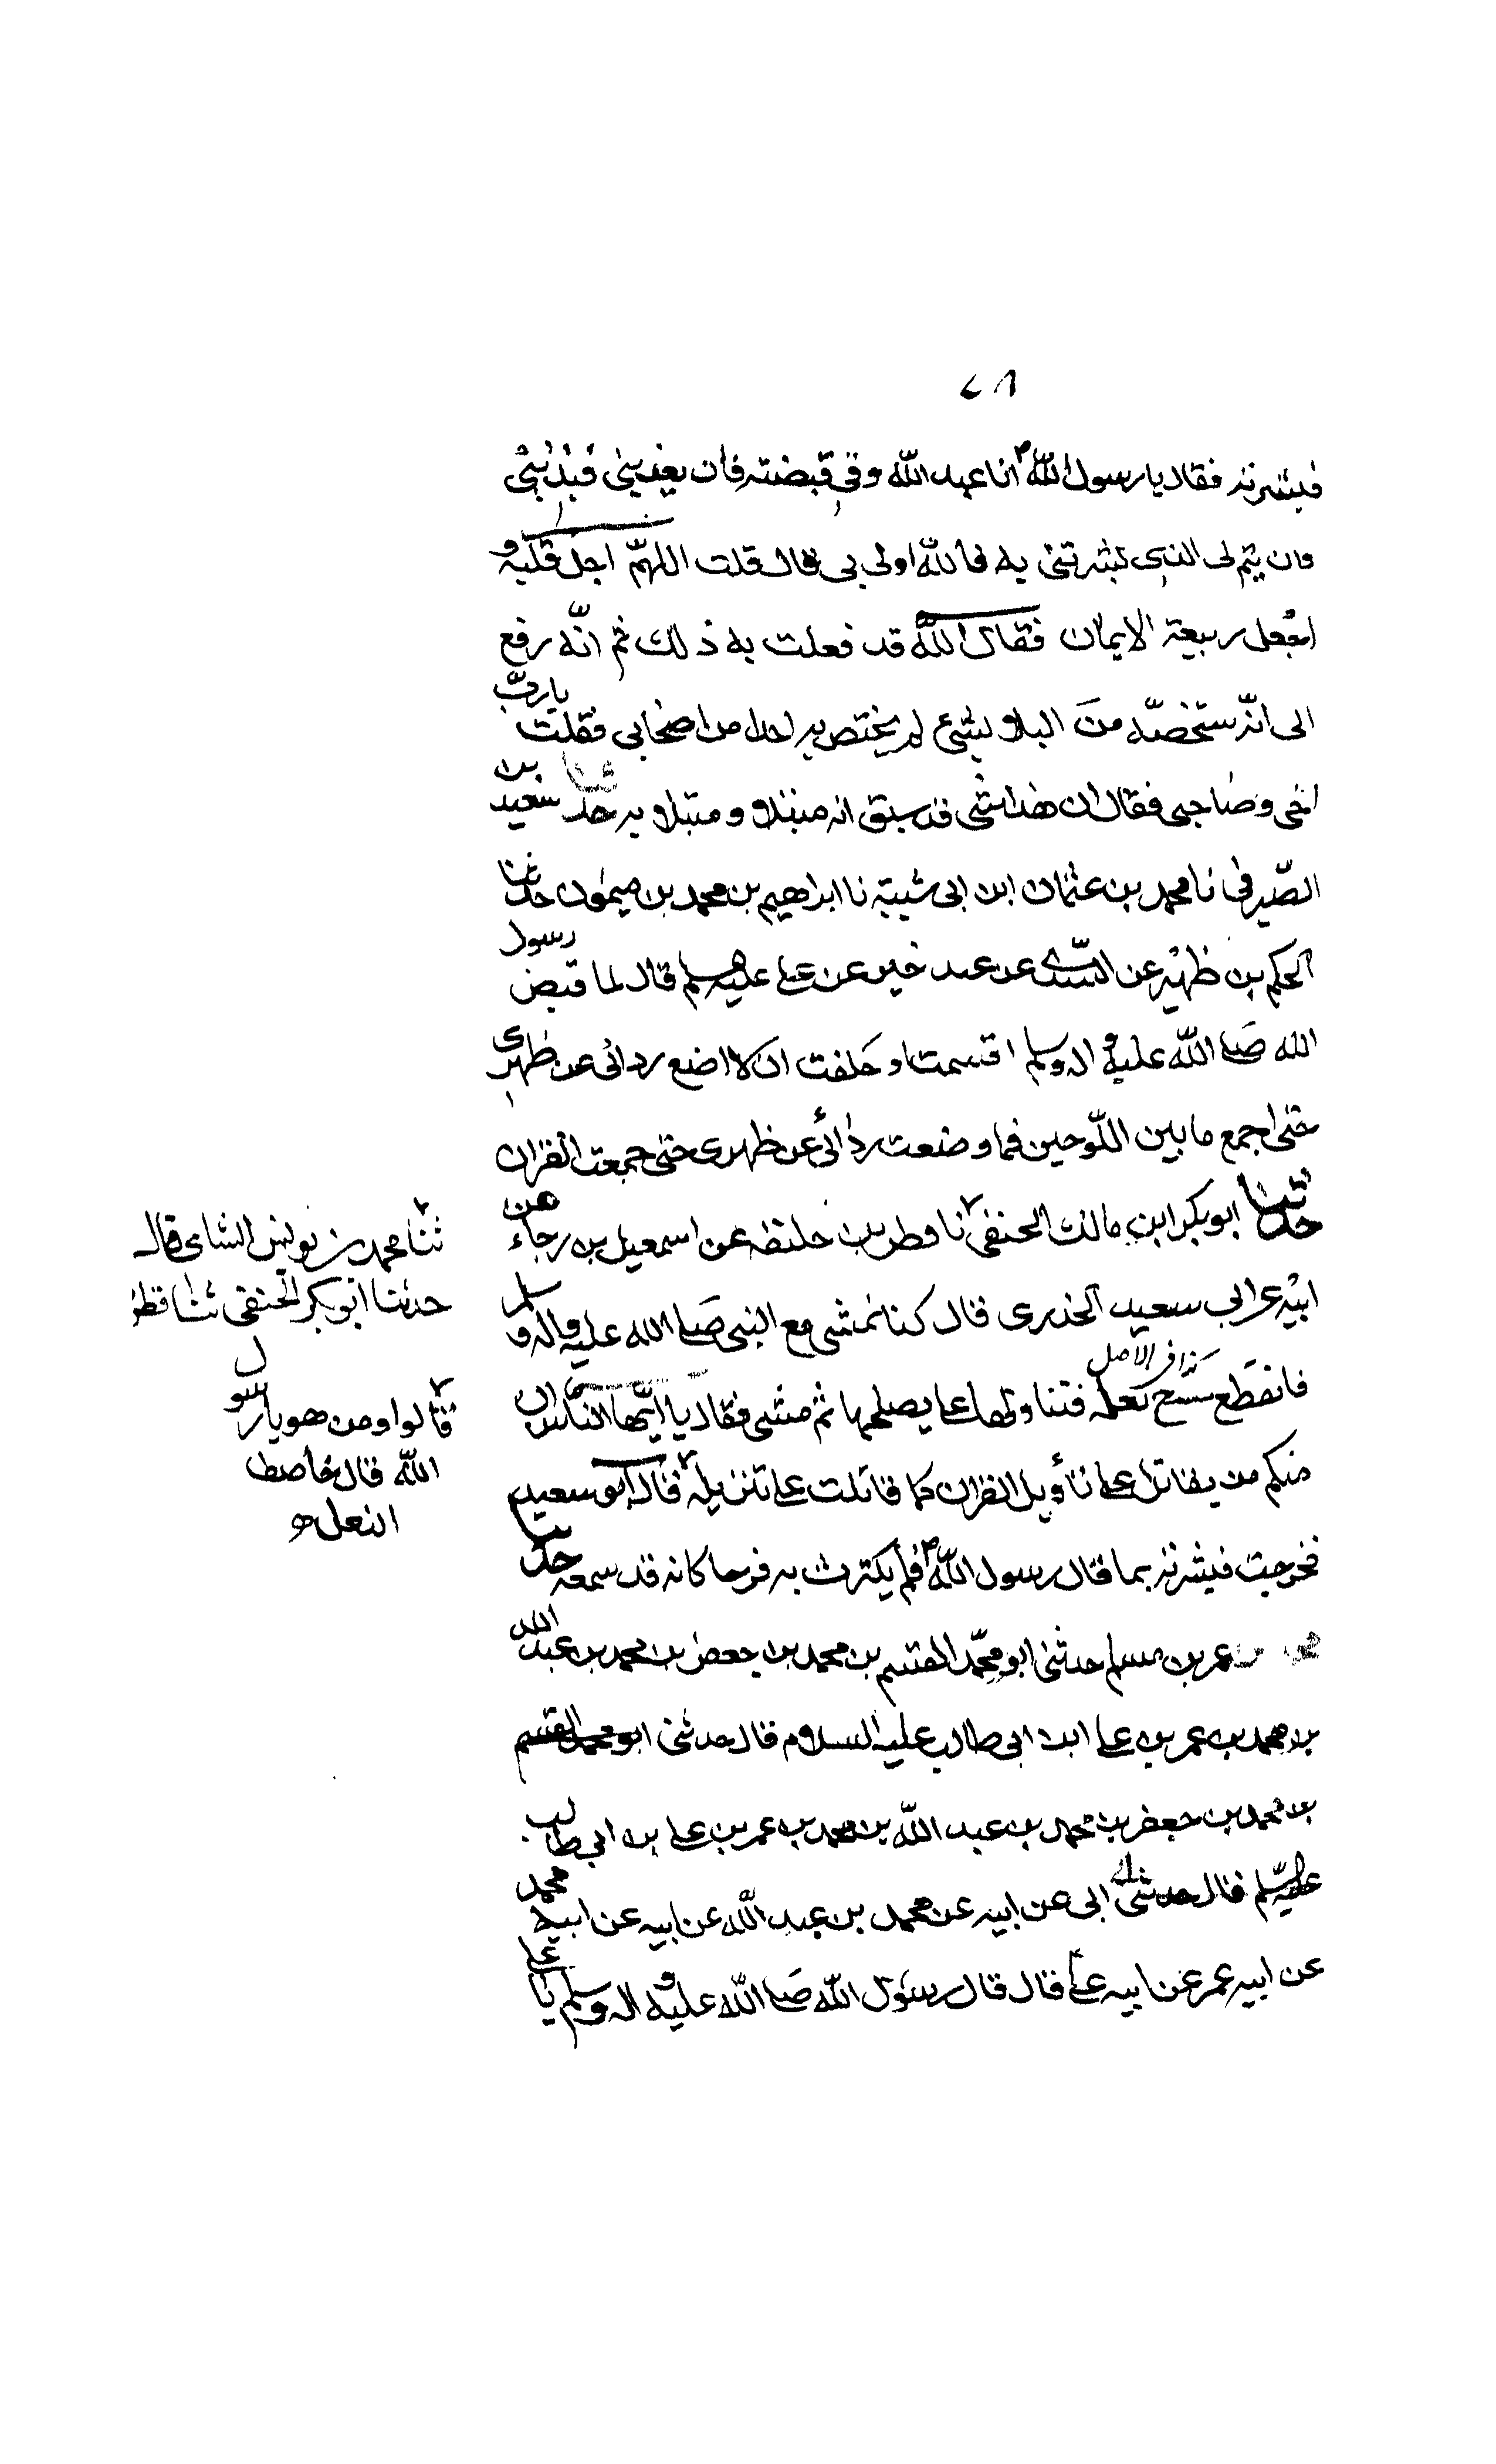 ٧٨
فبشرته فقال يا رسول الله ص انا عبد الله وفي قبضته فان يعذبني فبذنبي
وان يتم لى الذى بشرتنى به فالله اولى بى قال قلت اللهمّ اجل قلبه و
اجعل ربيعة الايمان فقال الله قد فعلت به ذلك ثم انّه رفع
الى انّه ستخصّه من البلاء بشئ لم يختص به احدا من اصحابى فقلت يا ربّ
اخى وصاحبى فقال ان هذا شى قد سبق انه مبتلا و مبتلا به حدثنا سعيد بن
الصّيرفى نا محمد بن عثمان ابن ابى شيبة نا ابراهيم بن محمد بن ميمون حدثنا
الحكم بن ظهير عن السّدّى عن عبد خير عن على عليه السلم قال لما قبض رسول
الله صلى الله عليه واله وسلم اقسمت او حلفت ان لا اضع ردائى عن ظهرى
حتى اجمع ما بين اللّوحين فما وضعت ردائى عن ظهرى حتى جمعت القران
حدثنا ابو بكر ابن مالك الحنفى نا فطر بن خليفة عن اسمعيل بن رجاء عن
ابيه عن ابى سعيد الخدرى قال كنا نمشى مع النبى صلى الله عليه واله وسلم
كذا فى الاصل
فانقطع شسع نعله فتناولها على يصلحها ثم مشى فقال يا ايّها الناس ان
منكم من يقاتل على تأويل القران كما قاتلت على تنزيله قال ابو سعيد
فخرجت فبشرته بما قال رسول الله ص فلم يكترث به فرحا كانه قد سمعه حدثنا
بن عمر بن مسلم حدثنى ابو محمّد القسم بن محمد بن جعفر بن محمد بن عبد الله
بن محمد بن عمر بن على ابن ابى طالب عليه السلام قال حدثنى ابو محمد القسم
بن محمد بن جعفر بن محمد بن عبد الله بن محمد بن عمر بن على بن ابى طالب
عليه السّلم قال حدثنى ابى عن ابيه عن محمد بن عبد الله عن ابيه عن ابيه محمد
عن ابيه عمر عن ابيه على قال قال رسول الله صلى الله عليه واله وسلم يا على
ثنا محمد بن يونس الشامى قال
حدثنا ابو بكر الحنفى ثنا فطر
قالوا ومن هو يا رسول
الله قال خاصف
النعل